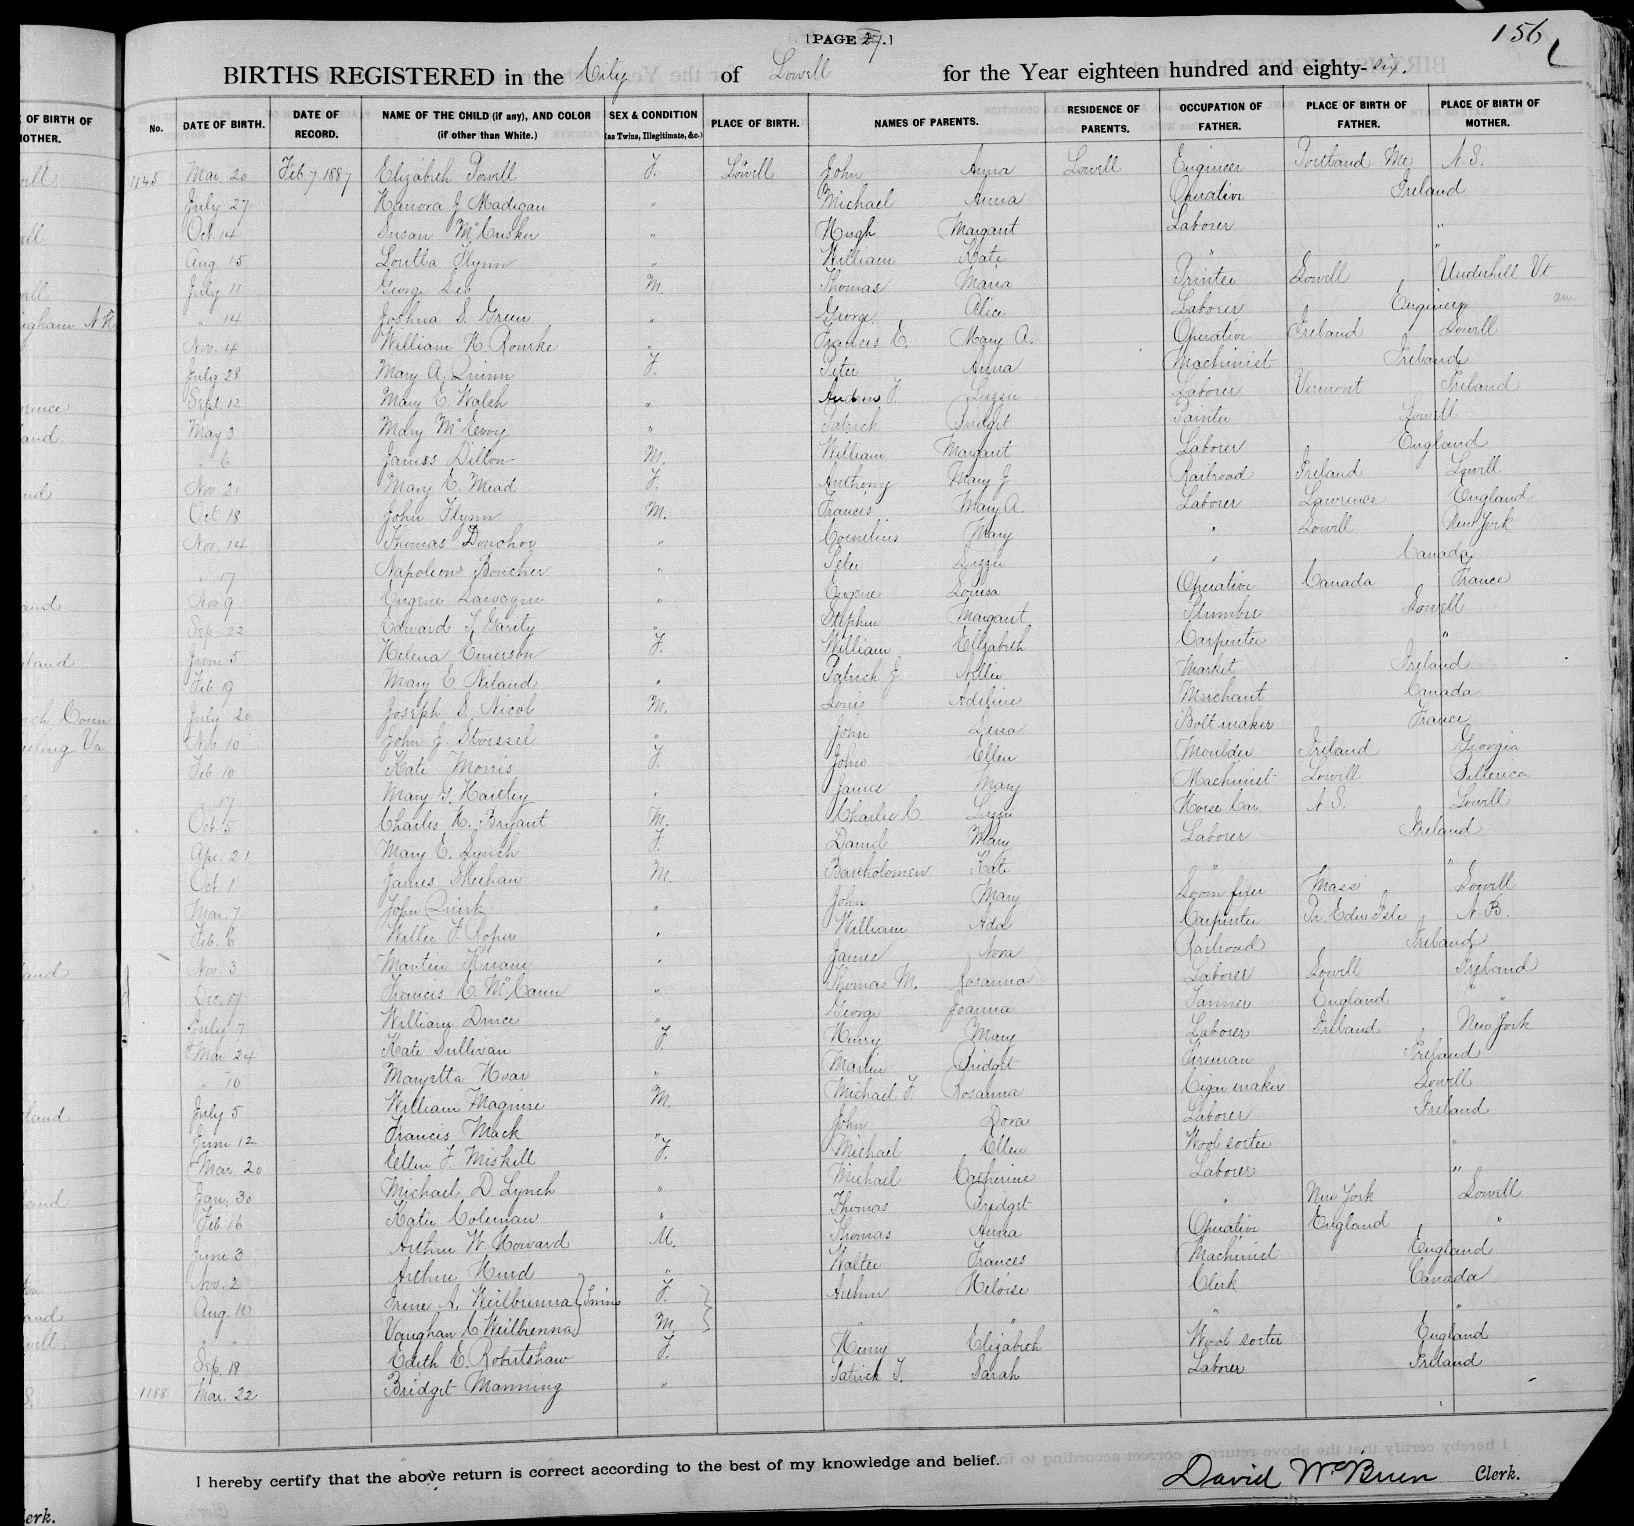 156
[PAGE 27.]
BIRTHS REGISTERED in the City of Lowell for the Year eighteen hundred and eighty-six.
No. DATE OF BIRTH. DATE OF RECORD. NAME OF THE CHILD (if any), AND COLOR (if other than White.) SEX & CONDITION (as Twins, Illegitimate, &c.) PLACE OF BIRTH. NAMES OF PARENTS. RESIDENCE OF PARENTS. OCCUPATION OF FATHER. PLACE OF BIRTH OF FATHER. PLACE OF BIRTH OF MOTHER.
1145 Mar. 20 Feb 7 1887 Elizabeth Powell F. Lowell John Anna Lowell Engineer Portland Me N.S.
July 27 Hanora J. Madigan " Michael Anna Operative Ireland
Oct. 14 Susan McCusker " Hugh Margaret Laborer "
Aug. 15 Loretta Flynn " William Kate " "
July 11 George Leo M. Thomas Maria Printer Lowell Underhill Vt
" 14 Joshua S. Green " George Alice Laborer
Nov. 4 William H. Rourke " Francis E. Mary A. Operative Ireland Lowell
July 28 Mary A. Quinn F. Peter Anna Machinist Ireland
Sept. 12 Mary E. Walsh " Andrew F. Lizzie Laborer Vermont Ireland
May 3 Mary McEvoy " Patrick Bridget Painter Lowell
" 6 James Dillon M. William Margaret Laborer England
Nov. 21 Mary E. Mead F. Anthony Mary J Railroad Ireland Lowell
Oct 18 John Flynn M. Francis Mary A. Laborer Lawrence England
Nov. 14 Thomas Donohoe " Cornelius Mary " Lowell New York
" 17 Napoleon Boucher " Peter Lizzie " Canada
Nov 9 Eugene " Eugene Louisa Operative Canada France
Sep. 22 Edward F. Garity " Stephen Margaret Plumber Lowell
June 5 Helena Emerson F. William Elizabeth Carpenter "
Feb. 19 Mary E. Niland " Patrick J. Nellie Market Ireland
July 20 Joseph S. Nicol M. Louis Adeline Merchant Canada
Nov 10 John J. " John Lena Bolt maker France
Feb 10 Kate Morris F. John Ellen Moulder Ireland Georgia
" 17 Mary G. Hartley " James Mary Machinist Lowell Billerica
Oct. 5 Charles H. Bryant M. Charles C. Lizzie Horse Car N.S. Lowell
Apr. 21 Mary E. Lynch F. Daniel Mary Laborer Ireland
Oct. 1 James Sheehan M. Bartholomew Kate " "
Mar. 7 John Quirk " John Mary Loom fixer Mass Lowell
Feb. 6 Willie F. Roper " William Ada Carpenter Pr. Edw Isle N.B.
Nov. 3 Martin Kirane " James Nora Railroad Ireland
Dec. 17 Francis H. McCann " Thomas M. Rosanna Laborer Lowell Ireland
July 7 William Druce " George Joanna Tanner England "
Mar. 24 Kate Sullivan F. Henry Mary Laborer Ireland New York
" 10 Maryetta Hoar " Martin Bridget Fireman Ireland
July 5 William Maguire M. Michael F. Rosanna Cigar maker Lowell
June 12 Francis Mack " John Dora Laborer Ireland
Mar. 20 Ellen F. Miskell F. Michael Ellen Wool sorter "
Jan. 30 Michael D. Lynch " Michael Catherine Laborer "
Feb 16 Katie Coleman " Thomas Bridget " New York Lowell
June 3 Arthur W. Howard M. Thomas Anna Operative England "
Nov. 2 Arthur Hurd " Walter Frances Machinist England
Aug. 10 Irene A. Weilbrenna Twins F. Arthur Heloise Clerk Canada
" " Vaughan C Weilbrenna M. " " " "
Sep. 18 Edith E. Robertshaw F. Henry Elizabeth Wool sorter England
1188 Mar. 22 Bridget Manning " Patrick T. Sarah Laborer Ireland
I hereby certify that the above return is correct according to the best of my knowledge and belief.
David McBrien Clerk.